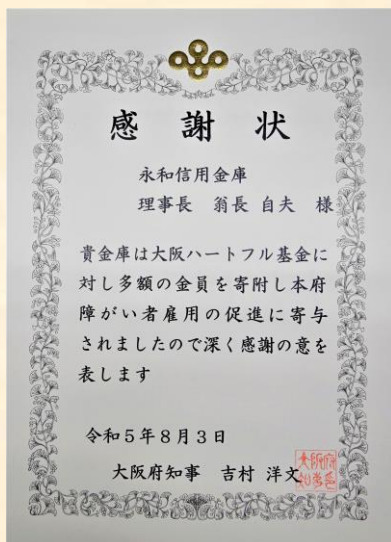 感謝状
永和信用金庫
理事長 翁長 自夫 様
貴金庫は大阪ハートフル基金に
対し多額の金員を寄附し本府
障がい者雇用の促進に寄与
されましたので深く感謝の意を
表します
令和5年8月3日
大阪府知事 吉村 洋文